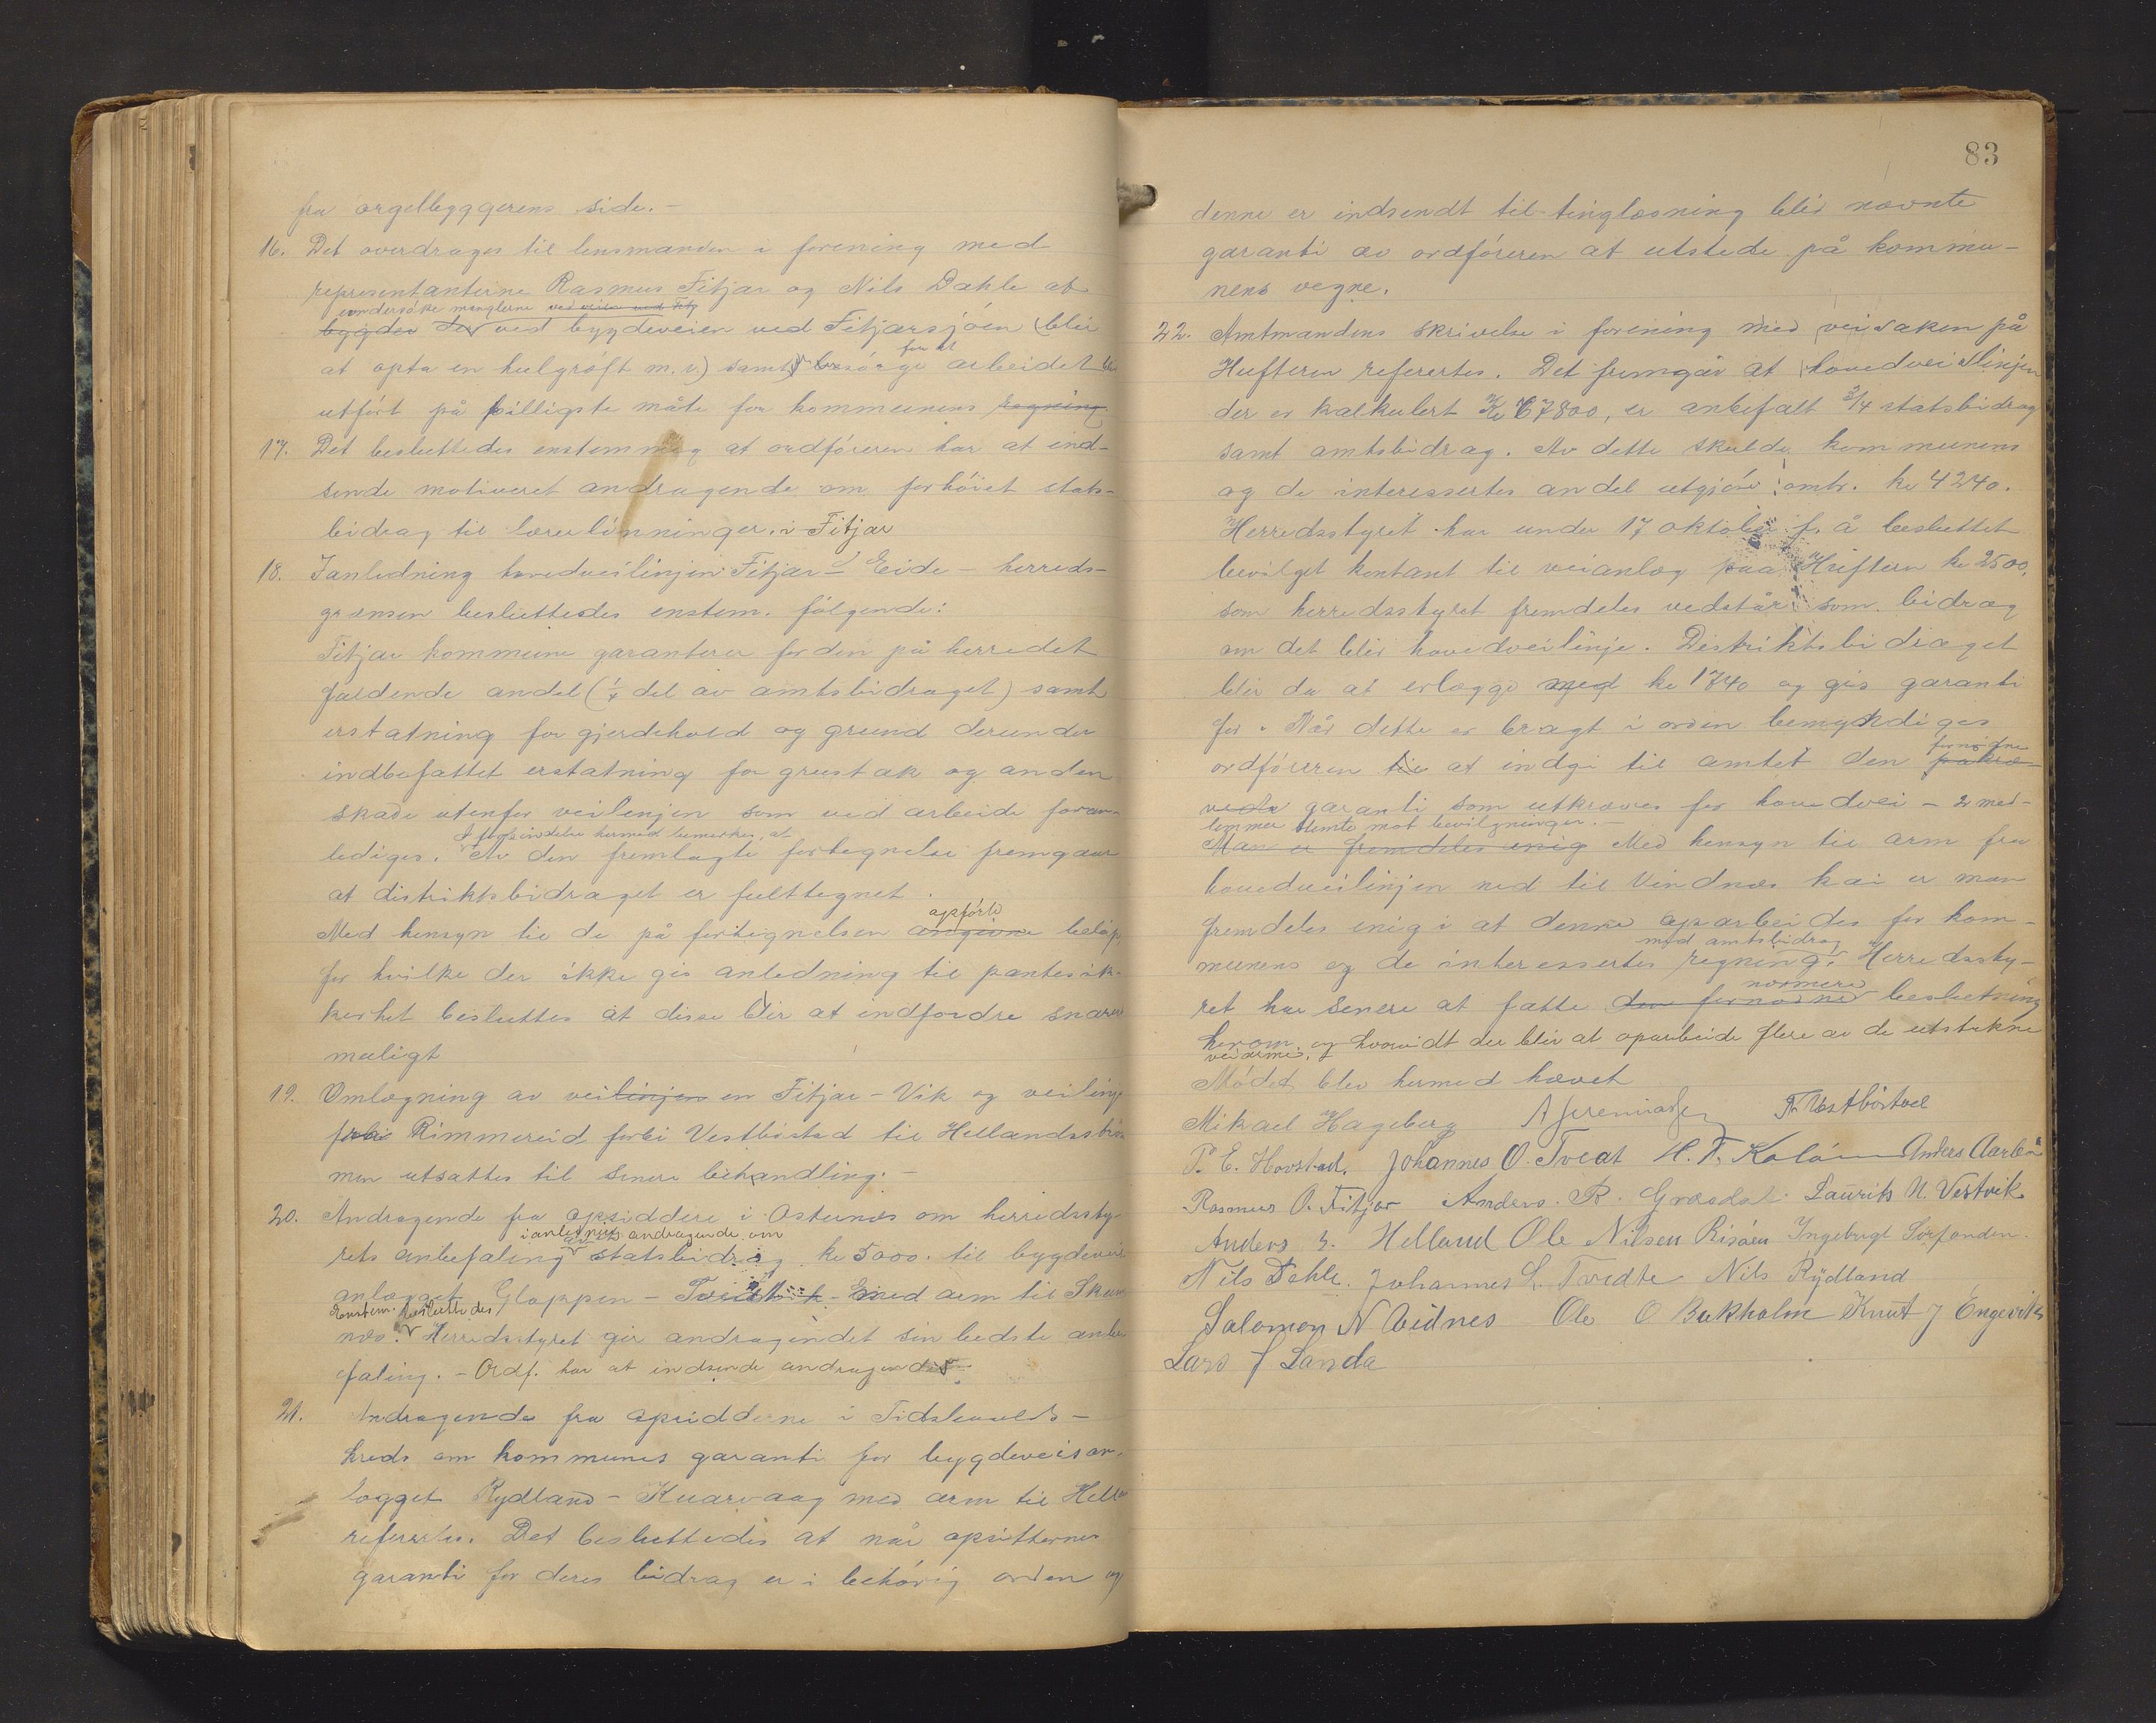 fra orgelbyggerens side. -
16. Det overdrages til lensmanden i forening med
representanterne Rasmus Fitjar og Nils Dahle at
undersöke manglerne ved veien ved Fitj
bygdev der ved bygdeveien ved Fitjarsjöen (blir
at opta en hulgröft m.v.) samt besörge for at arbeidet
utfört på billigste måte for kommunens regning
17. Det besluttedes enstemmig at ordföreren har at ind-
sende motiveret andragende om forhöiet stats-
bidrag til lærerlönninger i Fitjar
18. I anledning hovedveilinjen Fitjar - Eide - herreds-
grænsen besluttedes enstem. fölgende:
Fitjar kommune garanterer for den på herredet
faldende andel (¼ del av amtsbidraget) samt
erstatning for gjerdehold og grund derunder
indbefattet erstatning for grustak og anden
skade utenfor veilinjen som ved arbeide foran-
lediges. I forbindelse hermed bemerkes, at
Av den fremlagte fortegnelse fremgaar
at distriktsbidraget er fulttegnet.
Med hensyn til de på fortegnelsen angivne opförte belöp,
for hvilke der ikke gis anledning til pantesik-
kerhet besluttes at disse blir at indfordre snarest
muligt
19. Omlægning av veilinjen en Fitjar - Vik og veilinje
forbi Rimmereid forbi Vestböstad til Hellandsströ
men utsattes til senere behandling. -
20. Andragende fra opsiddere i Osternes om herredssty-
rets anbefaling i anledning av andragende om statsbidrag kr 5000. til bygdevei
anlægget Gloppen - Tveit - med arm til Skum
nes. Enstem. besluttedes Herredsstyret gir andragendet sin bedste anbe
faling. - Ordf. har at indsende andragendet.
21. Andragende fra opsidderne i Tislevolds-
kreds om kommunes garanti for bygdeveisan-
lægget Rydland - Kvarvaag med arm til Hell
refererts. Det besluttedes at når opsitternes
garanti for deres bidrag er i behörig orden og
83
denne er indsendt til tinglæsning blir nævnte
garanti av ordföreren at utstede på kommu-
nens vegne.
22. Amtmandens skrivelse i forening med veisaken på
Hufteren refererts. Det fremgår at hovedveislinjen
der er kalkulert Kr 67800, er anbefalt ¾ statsbidrag
samt amtsbidrag. Av dette skulde kommunens
og de interessertes andel utgjöre omtr. kr 4240.
Herredsstyret har under 17 oktober f. å besluttet
bevilget kontant til veianlæg paa Hufteren kr 2500,
som herredsstyret fremdeles vedstår som bidrag
om det blir hovedveilinje. Distriktsbidraget
blir da at erlægge med kr 1740 og gis garanti
for. Når dette er bragt i orden bemyndiges
ordföreren til at indgi til amtet den fornödne påkræ-
vede garanti som utkræves for hovedvei - 2 med-
lemmer stemte mot bevilgninger. -
Man er fremdeles enig Med hensyn til arm fra
hovedveilinjen ned til Vindnes kai er man
fremdeles enig i at denne oparbeides for kom-
munens og de interessertes regning med amtsbidrag. Herredssty-
ret har senere at fatte den fornödne nærmere beslutning
herom og hvorvidt der blir at oparbeide flere av de utstukne
veiarmer.
Mödet blev hermed hævet
Mikael Hageberg A Jeremiassen T. Vestböstad
P. E. Hovstad. Johannes O. Tveit H. T. Kalöen Anders Aarbö
Rasmus O. Fitjar Anders R. Græsdal. Laurits N. Vestvik
Anders J. Helland Ole Nilsen Risöen Ingebrigt Sörfonden.
Nils Dahle. Johannes L. Tvedte Nils Rydland
Salomon N Vidnes Ole O Bukholm Knut J Engevik
Lars J Landa